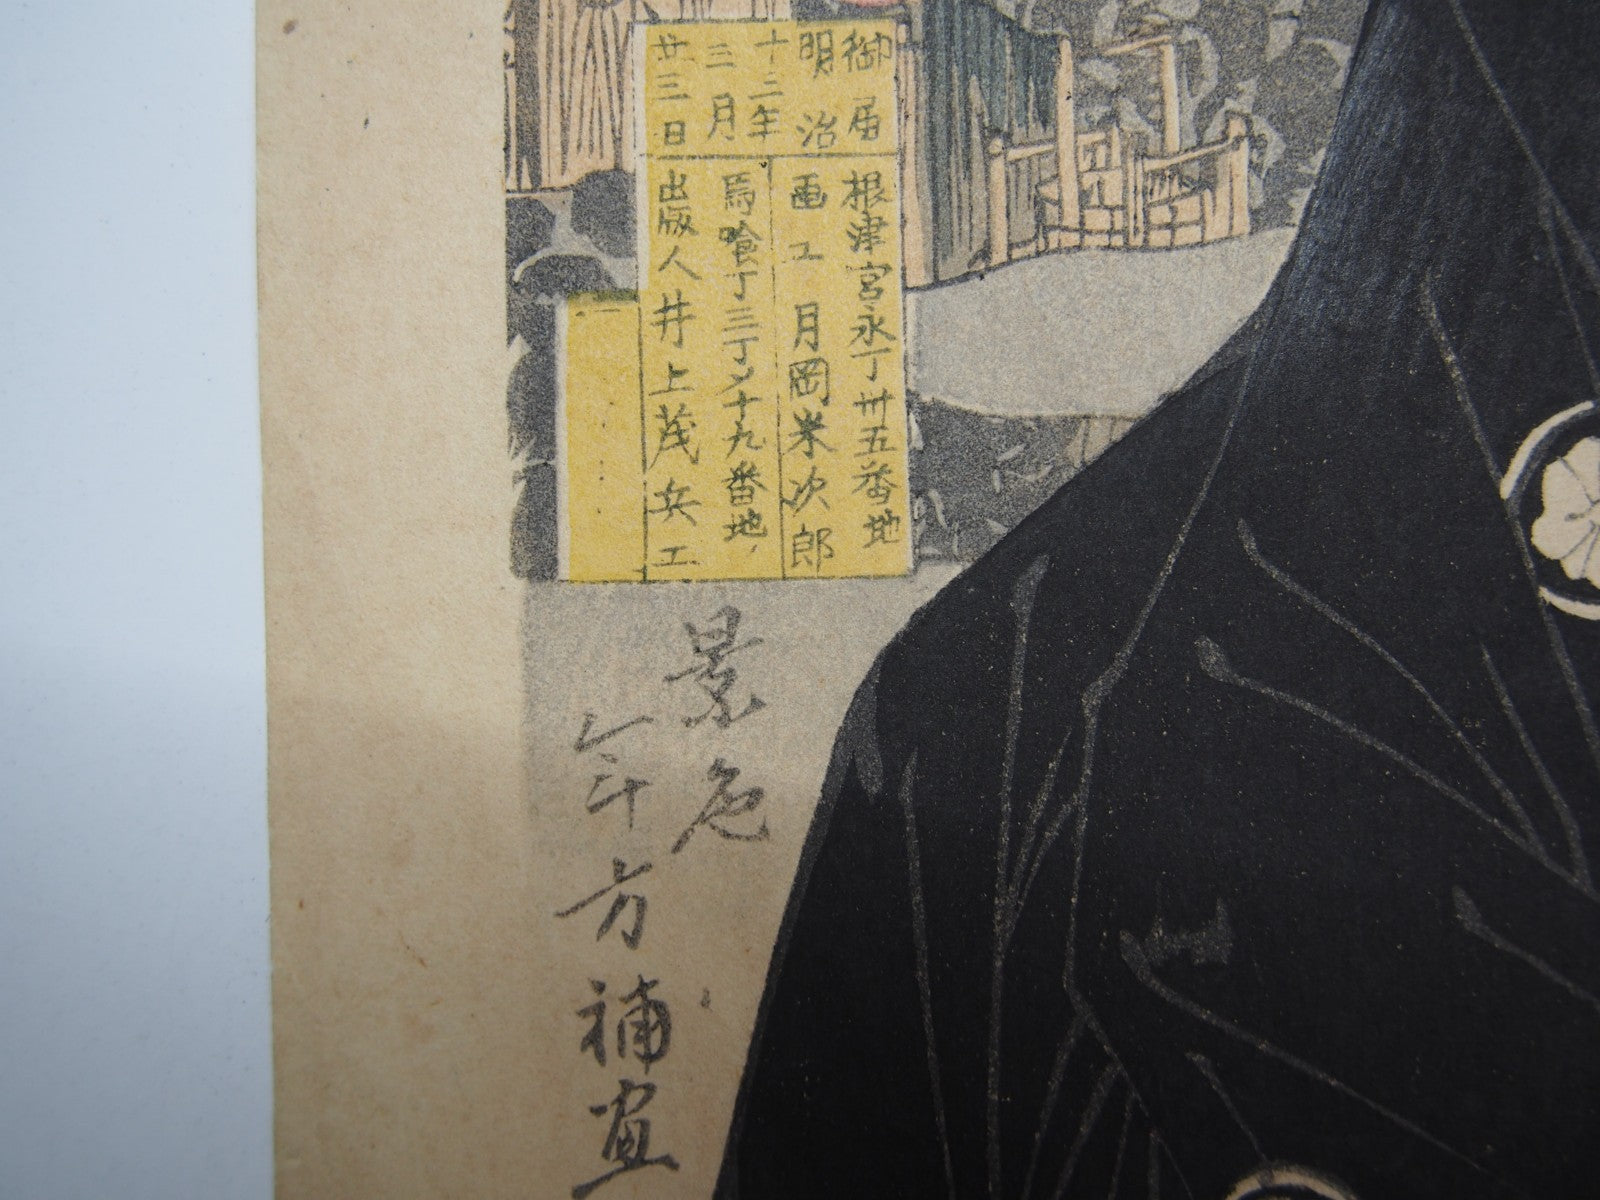 御届
明治
十三年
三月
廿三日
根津宮永丁卅五番地
画工 月岡米次郎
馬喰丁三丁メ十九番地
出版人 井上茂兵エ
景色
年方補画